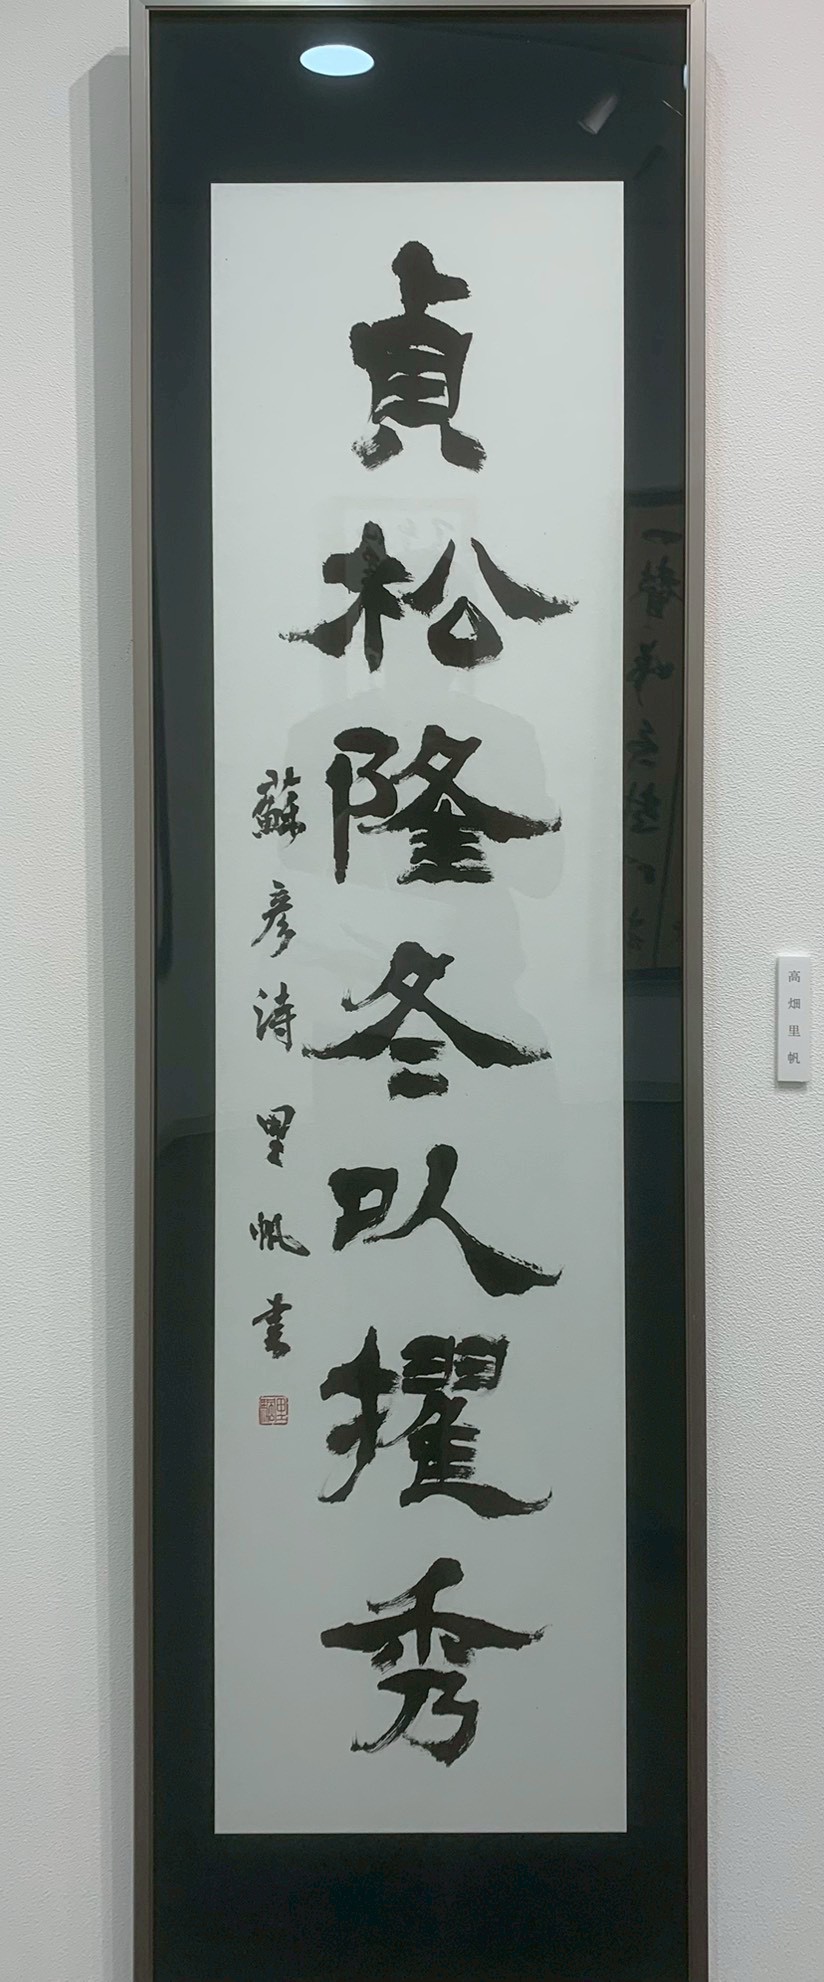 貞松隆冬以擢秀
蘇彦詩 里帆書
高畑里帆